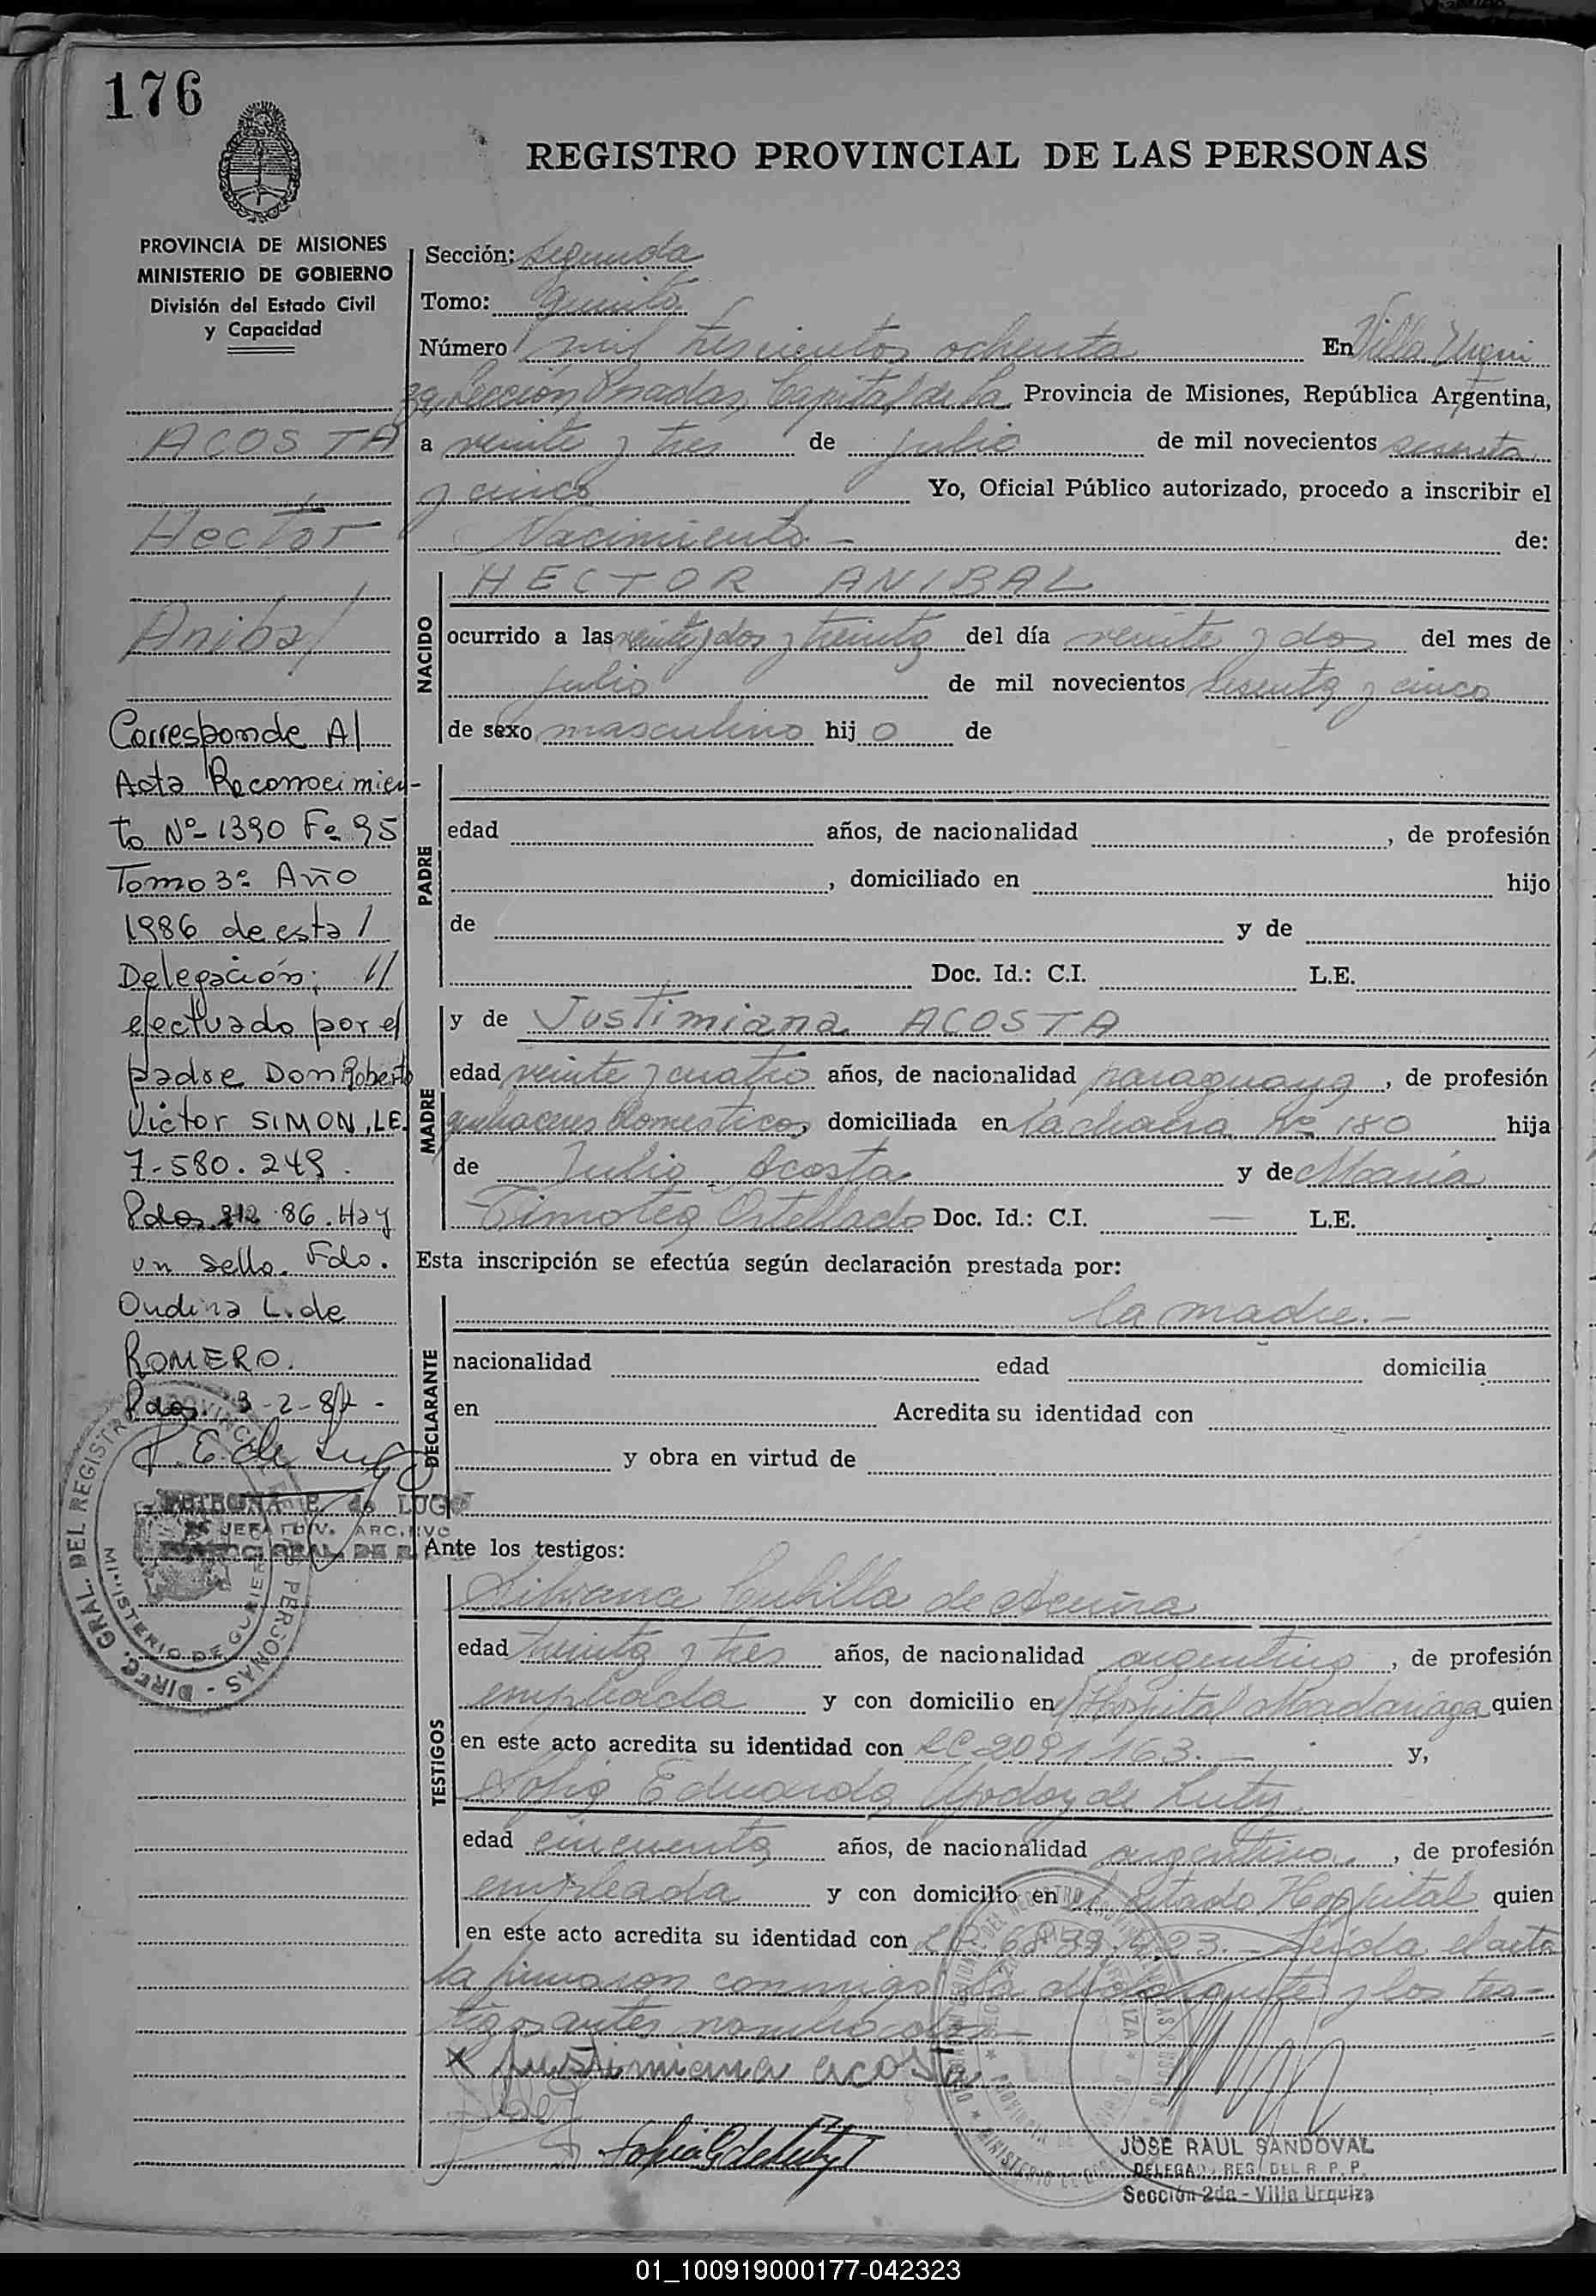 176
REGISTRO PROVINCIAL DE LAS PERSONAS
PROVINCIA DE MISIONES
MINISTERIO DE GOBIERNO
División del Estado Civil
y Capacidad
ACOSTA
Hector
Anibal
Corresponde Al
Acta Reconocimien-
to Nº 1390 Fº 95
Tomo 3º Año
1986 de esta /
Delegación; //
efectuado por el
padre Don Roberto
Victor SIMON, LE.
7-580.249.
Pdas 86. Hay
un sello. Fdo.
Ondina L. de
ROMERO.
Pdas. 3-2-87-
P. E. de Lugo
E. de LUGO
JEFA DIV. ARCHIVO
DIREC. GRAL. DEL REGISTRO PROVINCIAL DE PERSONAS
MINISTERIO DE GOBIERNO
Sección: segunda
Tomo: quinto
Número mil trescientos ochenta En Villa Urqui
za Sección Posadas, Capital de la Provincia de Misiones, República Argentina,
a veinte y tres de julio de mil novecientos sesenta
y cinco Yo, Oficial Público autorizado, procedo a inscribir el
Nacimiento - de:
NACIDO
HECTOR ANIBAL
ocurrido a las veinte y dos y treinta del día veinte y dos del mes de
julio de mil novecientos sesenta y cinco
de sexo masculino hij o de
PADRE
edad años, de nacionalidad , de profesión
, domiciliado en hijo
de y de
Doc. Id.: C.I. L.E.
MADRE
y de Justimiana ACOSTA
edad veinte y cuatro años, de nacionalidad paraguaya, de profesión
quehaceres domesticos, domiciliada en la chacra Nº 180 hija
de Julio Acosta y de Maria
Timotea Ortellado Doc. Id.: C.I. — L.E.
Esta inscripción se efectúa según declaración prestada por:
DECLARANTE
la madre.-
nacionalidad edad domicilia
en Acredita su identidad con
y obra en virtud de
Ante los testigos:
TESTIGOS
Silvana Cubilla de Acuña
edad treinta y tres años, de nacionalidad argentina, de profesión
empleada y con domicilio en Hospital Madariaga quien
en este acto acredita su identidad con LC 2091163.- y,
Sofia Eduarda Godoy de Luty
edad cincuenta años, de nacionalidad argentina, de profesión
empleada y con domicilio en el citado Hospital quien
en este acto acredita su identidad con Leída el acta
la firmaron conmigo la declarante y los tes-
tigos antes nombrados-
x Justimiana acosta
Sofia G de Luty
JOSE RAUL SANDOVAL
DELEGADO REG. DEL R. P. P.
Sección 2da - Villa Urquiza
01_100919000177-042323